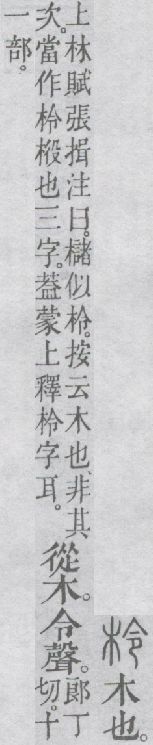 柃木也。
上林賦張揖注曰。櫧似柃。按云木也、非其
次。當作柃椴也三字。葢蒙上釋柃字耳。
從木。令聲。
郎丁
切。十
一部。